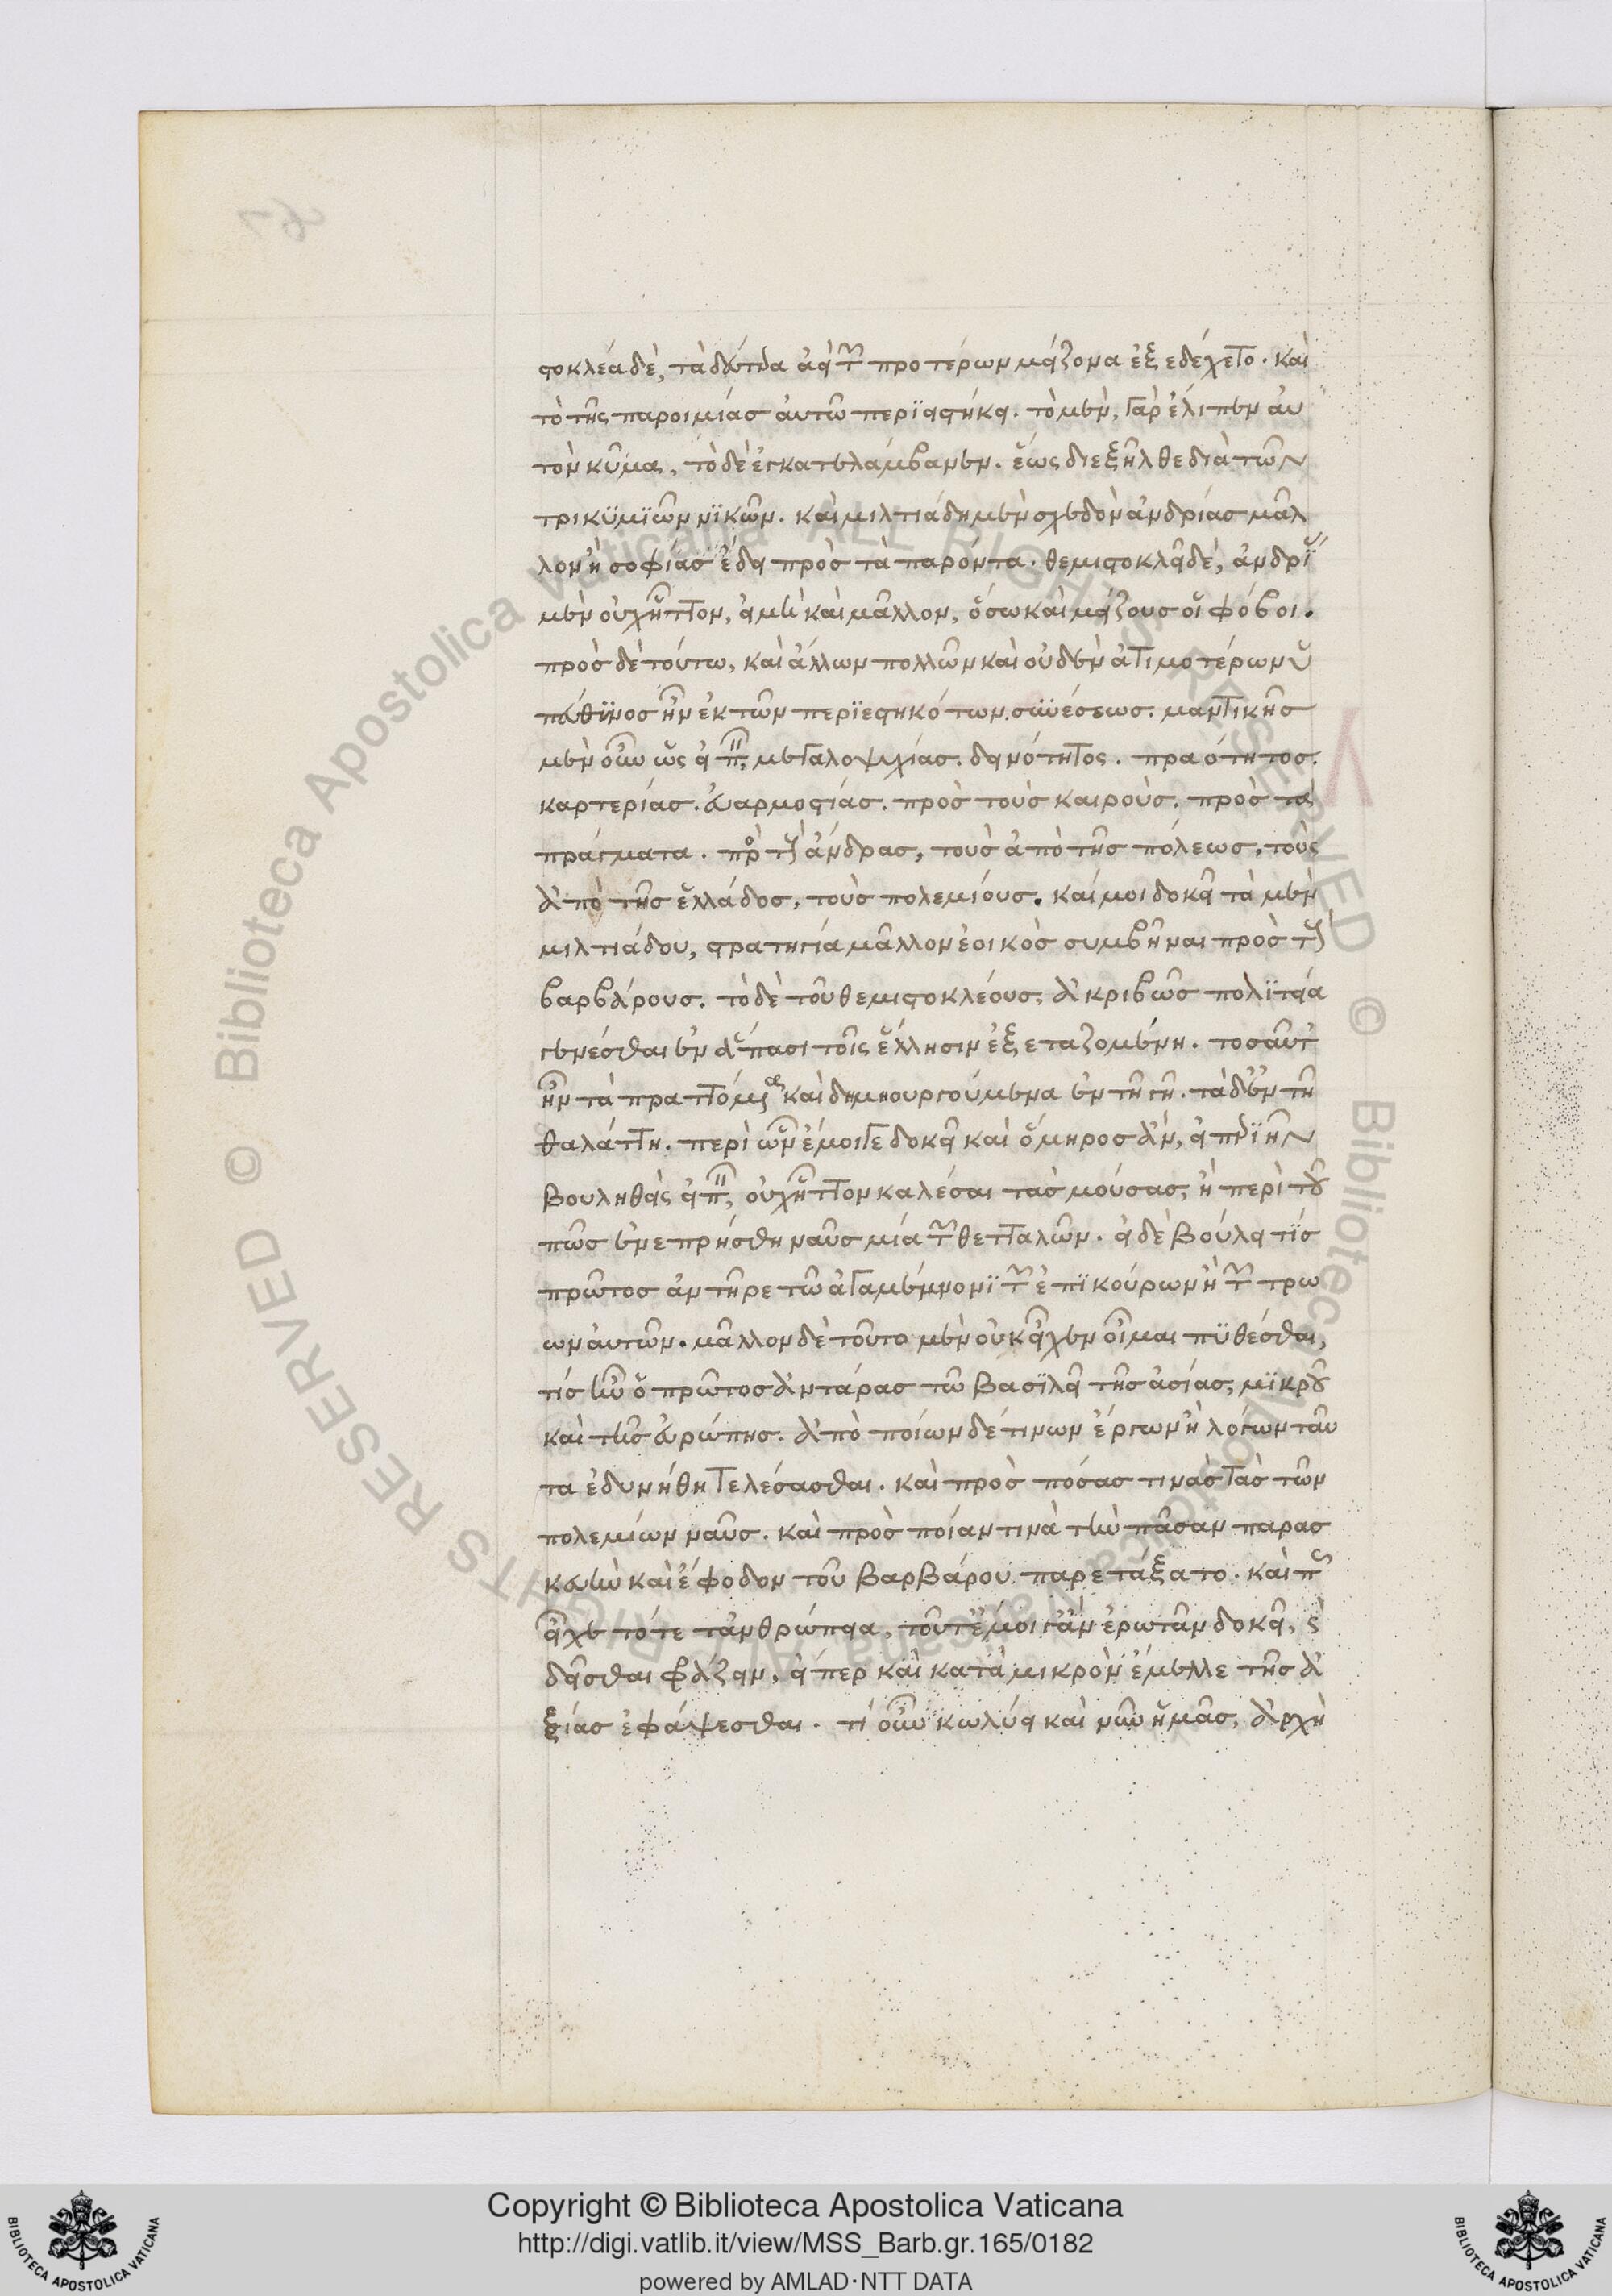 στοκλέα δὲ, τὰ δεύτερα ἀεὶ τῶν προτέρων μείζονα ἐξεδέχετο. καὶ
τὸ τῆς παροιμίας αὐτῶ περιειστήκει. τὸ μὲν γὰρ ἔλιπεν αὐ
τὸν κῦμα, τὸ δὲ ἐγκατελάμβανεν. ἕως διεξῆλθε διὰ τῶν
τρικυμιῶν νικῶν. καὶ μιλτιάδη μὲν σχεδὸν ἀνδρίας μᾶλ
λον ἢ σοφίας ἔδει πρὸς τὰ παρόντα. θεμιστοκλεῖ δὲ, ἀνδρίας
μὲν οὐχ ἧττον, εἰ μὴ καὶ μᾶλλον, ὅσω καὶ μείζους οἱ φόβοι.
πρὸς δὲ τούτω, καὶ ἄλλων πολλῶν καὶ οὐδὲν ἀτιμοτέρων ὑ
πεύθυνος ἦν ἐκ τῶν περιεστηκότων. συνέσεως. μαντικῆς
μὲν οὖν ὡς εἰπεῖν, μεγαλοψυχίας. δεινότητος. πραότητος.
καρτερίας. εὐαρμοστίας. πρὸς τοὺς καιροὺς. πρὸς τὰ
πράγματα. πρὸς τοὺς ἄνδρας, τοὺς ἀπὸ τῆς πόλεως, τοὺς
ἀπὸ τῆς ἑλλάδος, τοὺς πολεμίους. καί μοι δοκεῖ τὰ μὲν
μιλτιάδου, στρατηγία μᾶλλον ἐοικὸς συμβῆναι πρὸς τοὺς
βαρβάρους. τὸ δὲ τοῦ θεμιστοκλέους, ἀκριβῶς πολιτεία
γενέσθαι ἐν ἅπασι τοῖς ἕλλησιν ἐξεταζομένη. τοσαῦτ
ἦν τὰ πραττόμενα καὶ δημιουργούμενα ἐν τῆ γῆ. τὰ δ' ἐν τῆ
θαλάττη. περὶ ὧν ἔμοιγε δοκεῖ καὶ ὅμηρος ἂν, εἰ περιῆν
βουληθεὶς εἰπεῖν, οὐχ ἧττον καλέσαι τὰς μούσας, ἢ περὶ τοῦ
πῶς ἐνεπρήσθη ναῦς μία τῶν θετταλῶν. εἰ δὲ βούλει τίς
πρῶτος ἀντῆρε τῶ ἀγαμέμνονι τῶν ἐπικούρων ἢ τῶν τρώ
ων αὐτῶν. μᾶλλον δὲ τοῦτο μὲν οὐκ εἶχεν οἶμαι πυθέσθαι,
τίς ἦν ὁ πρῶτος ἀντάρας τῶ βασιλεῖ τῆς ἀσίας, μικροῦ
καὶ τῆς εὐρώπης. ἀπὸ ποίων δέ τινων ἔργων ἢ λόγων ταῦ
τα ἐδυνήθη τελέσασθαι. καὶ πρὸς πόσας τινὰς τὰς τῶν
πολεμίων ναῦς. καὶ πρὸς ποίαν τινὰ τὴν πᾶσαν παρασ
κευὴν καὶ ἔφοδον τοῦ βαρβάρου παρετάξατο. καὶ ποῦ
εἶχε τότε τἀνθρώπεια, τοῦτ' ἔμοιγ' ἂν ἐρωτᾶν δοκεῖ,
δεῖσθαι φράζειν, εἴπερ καὶ κατὰ μικρὸν ἔμελλε τῆς ἀ
ξίας ἐφάψεσθαι. τί οὖν κωλύει καὶ νῦν ἡμᾶς, ἀρχὴ
Copyright © Biblioteca Apostolica Vaticana
http://digi.vatlib.it/view/MSS_Barb.gr.165/0182
powered by AMLAD·NTT DATA